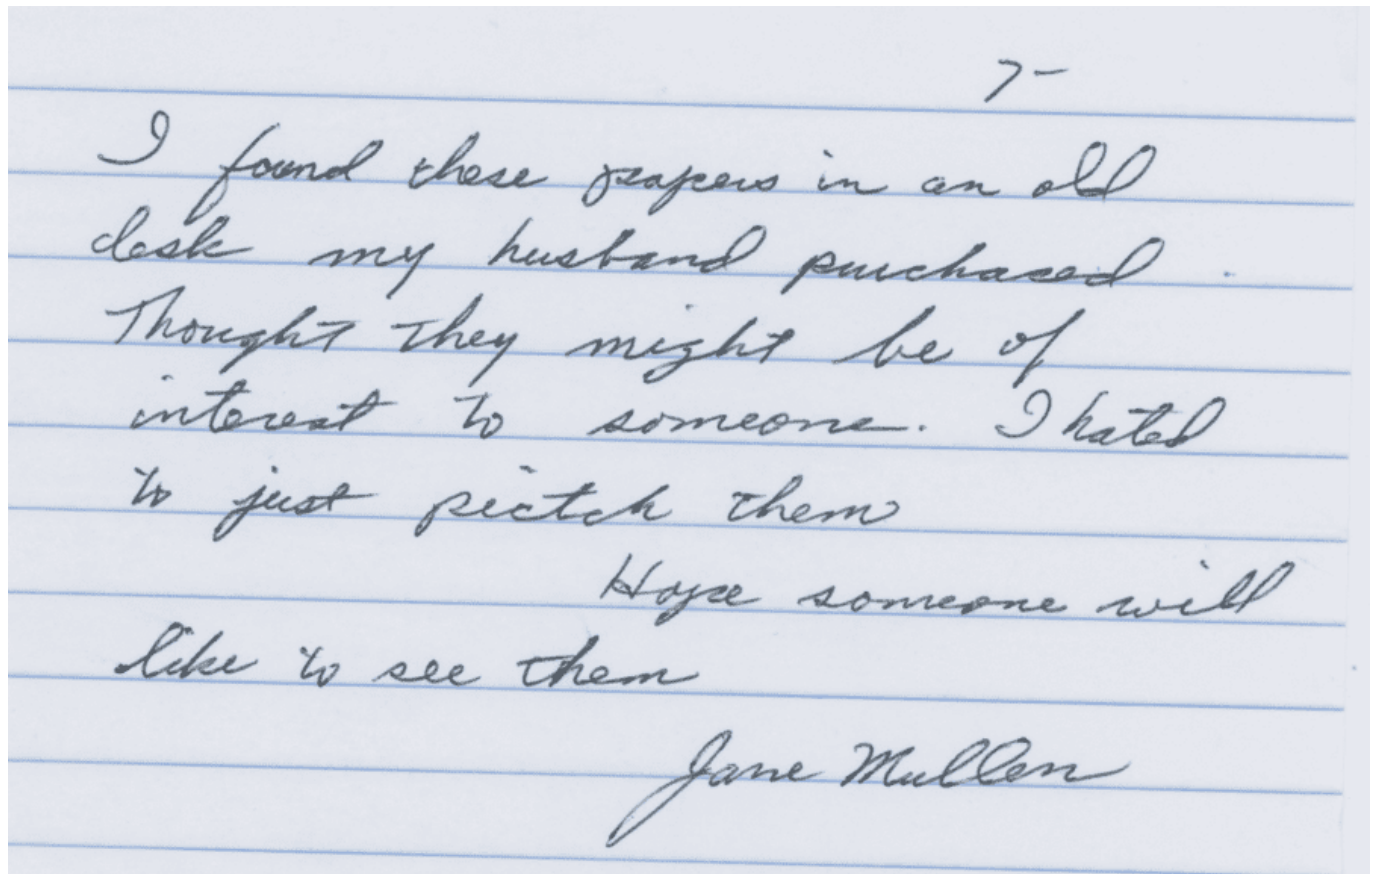 7-
I found these papers in an old
desk my husband purchased
Thought they might be of
interest to someone. I hated
to just pictch them
Hope someone will
like to see them
Jane Mullen